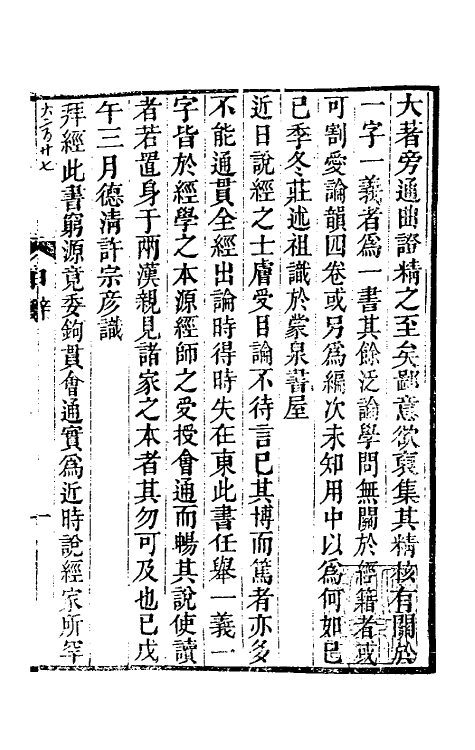 大著旁通曲證精之至矣鄙意欲裒集其精核有關於
一字一義者爲一書其餘泛論學問無關於經籍者或
可割愛論韻四卷或另爲編次未知用中以爲何如已
巳季冬莊述祖識於蒙泉書屋
近日說經之士膚受目論不待言已其博而篤者亦多
不能通貫全經出論時得時失在東此書任舉一義一
字皆於經學之本源經師之受授會通而暢其說使讀
者若置身于兩漢親見諸家之本者其勿可及也已戊
午三月德清許宗彥識
拜經此書窮源竟委鉤貫會通實爲近時說經家所罕
弁辭
一